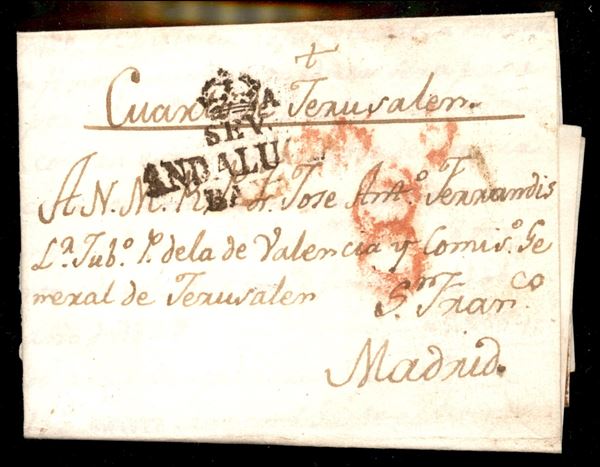 +
Cuar de Jerusalen.
A
SEV
ANDALU
BA
A N. M. R. Fr. Jose Ant.º Ferrandis
L.r Jub.º P. de la de Valencia y Comis.º Ge
neral de Jerusalen S.n Fran.co
Madrid.